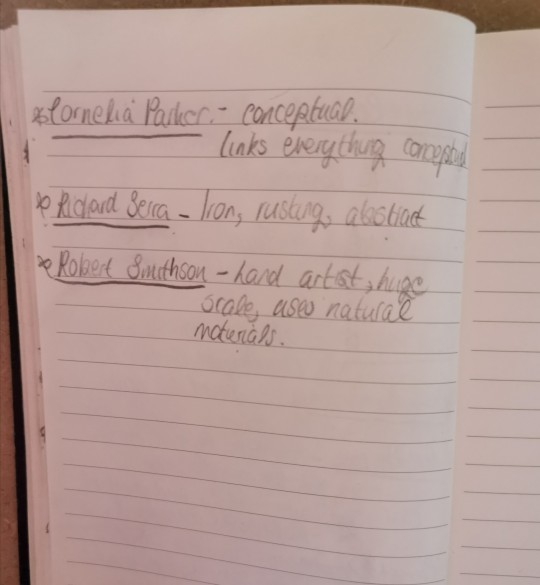 * Cornelia Parker - conceptual.
links everything conceptual
* Richard Serra - Iron, rusting, abstract
* Robert Smithson - land artist, huge
scale, uses natural
materials.